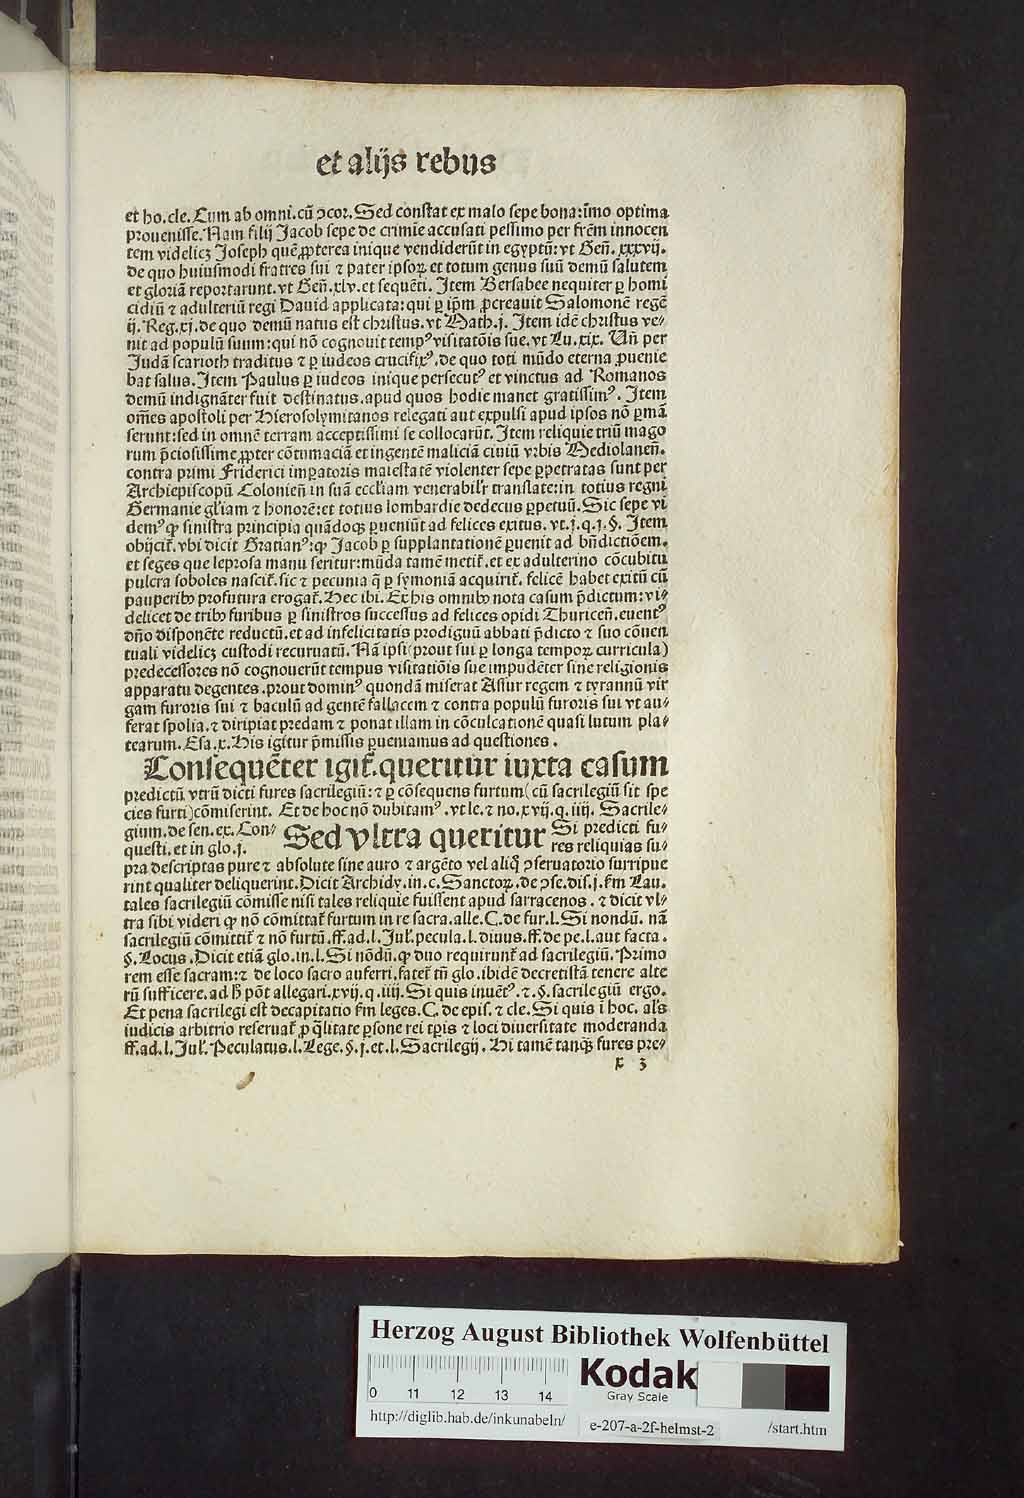 et alijs rebus
et ho. cle. Cum ab omni. cū ꝯcor. Sed constat ex malo sepe bona: īmo optima
prouenisse. Nam filij Jacob sepe de crimīe accusati pessimo per frēm innocen
tem videlicꝫ Joseph quē ꝓpterea inique vendiderūt in egyptū: vt Geñ. xxxvij.
de quo huiusmodi fratres sui ⁊ pater ipsoꝝ et totum genus suū demū salutem
et gloriā reportarunt. vt Geñ. xlv. et sequēti. Item Bersabee nequiter ꝑ homi
cidiū ⁊ adulteriū regi Dauid applicata: qui ꝑ ip̄m ꝓcreauit Salomonē regē
ij. Reg. xj. de quo demū natus est christus. vt Math. j. Item idē christus ve⸗
nit ad populū suum: qui nō cognouit tempꝰ visitatōis sue. vt Lu. xix. Uñ per
Judā scarioth traditus ⁊ ꝑ iudeos crucifixꝰ. de quo toti mūdo eterna ꝓuenie
bat salus. Item Paulus ꝑ iudeos inique persecutꝰ et vinctus ad Romanos
demū indignāter fuit destinatus. apud quos hodie manet gratissimꝰ. Item
om̄es apostoli per Hierosolymitanos relegati aut expulsi apud ipsos nō ꝑmā
serunt: sed in omnē terram acceptissimi se collocarūt. Item reliquie triū mago
rum p̄ciosissime ꝓpter cōtumaciā et ingentē maliciā ciuiū vrbis Mediolaneñ.
contra primi Friderici imꝑatoris maiestatē violenter sepe ꝑpetratas sunt per
Archiepiscopū Colonieñ in suā eccl'iam venerabilr̄ translate: in totius regni
Germanie gl'iam ⁊ honorē: et totius lombardie dedecus ꝑpetuū. Sic sepe vi
demꝰ ꝙ sinistra principia quādoqꝫ ꝑueniūt ad felices exitus. vt. j. q. j. §. Item
obijcit̄. vbi dicit Gratianꝰ: ꝙ Jacob ꝑ supplantationē ꝑuenit ad bñdictiōem.
et seges que leprosa manu seritur: mūda tamē metit̄. et ex adulterino cōcubitu
pulcra soboles nascit̄. sic ⁊ pecunia q̄ ꝑ symoniā acquirit̄. felicē habet exitū cū
pauperibꝰ profutura erogat̄. Hec ibi. Ex his omnibꝰ nota casum p̄dictum: vi⸗
delicet de tribꝰ furibus ꝑ sinistros successus ad felices opidi Thuriceñ. euentꝰ
dño disponēte reductū. et ad infelicitatis prodigiuū abbati p̄dicto ⁊ suo cōuen
tuali videlicꝫ custodi recuruatū. Nā ipsi (prout sui ꝑ longa tempoꝝ curricula)
predecessores nō cognouerūt tempus visitatiōis sue impudēter sine religionis
apparatu degentes. prout dominꝰ quondā miserat Assur regem ⁊ tyrannū vir
gam furoris sui ⁊ baculū ad gentē fallacem ⁊ contra populū furoris sui vt au⸗
ferat spolia. ⁊ diripiat predam ⁊ ponat illam in cōculcationē quasi lutum pla⸗
tearum. Esa. x. His igitur p̄missis ꝑueniamus ad questiones.
Consequēter igit̄. queritur iuxta casum
predictū vtrū dicti fures sacrilegiū: ⁊ ꝑ cōsequens furtum (cū sacrilegiū sit spe
cies furti) cōmiserint. Et de hoc nō dubitamꝰ. vt le. ⁊ no. xvij. q. iiij. Sacrile⸗
gium. de sen. ex. Con⸗
questi. et in glo. j.
Sed vltra queritur
Si predicti fu⸗
res reliquias su⸗
pra descriptas pure ⁊ absolute sine auro ⁊ argēto vel aliq̊ ꝯseruatorio surripue
rint qualiter deliquerint. Dicit Archidy. in. c. Sanctoꝝ. de ꝯse. dis. j. ẜm Lau.
tales sacrilegiū cōmisse nisi tales reliquie fuissent apud sarracenos. ⁊ dicit vl⸗
tra sibi videri ꝙ nō cōmittat̄ furtum in re sacra. alle. C. de fur. l. Si nondū. nā
sacrilegiū cōmittit̄ ⁊ nō furtū. ff. ad. l. Jul'. pecula. l. diuus. ff. de pe. l. aut facta.
§. Locus. Dicit etiā glo. in. l. Si nōdū. ꝙ duo requirunt̄ ad sacrilegiū. Primo
rem esse sacram: ⁊ de loco sacro auferri. fatet̄ tñ glo. ibidē decretistā tenere alte
rū sufficere. ad h̄ pōt allegari. xvij. q. iiij. Si quis inuētꝰ. ⁊. §. sacrilegiū ergo.
Et pena sacrilegi est decapitatio ẜm leges. C. de epis. ⁊ cle. Si quis ī hoc. al's
iudicis arbitrio reseruat̄ ꝓ q̄litate ꝑsone rei tp̄is ⁊ loci diuersitate moderanda
ff. ad. l. Jul'. Peculatus. l. Lege. §. j. et. l. Sacrilegij. Hi tamē tanqꝫ fures pre⸗
x 3
Herzog August Bibliothek Wolfenbüttel
0 11 12 13 14
Kodak
Gray Scale
http://diglib.hab.de/inkunabeln/
e-207-a-2f-helmst-2
/start.htm